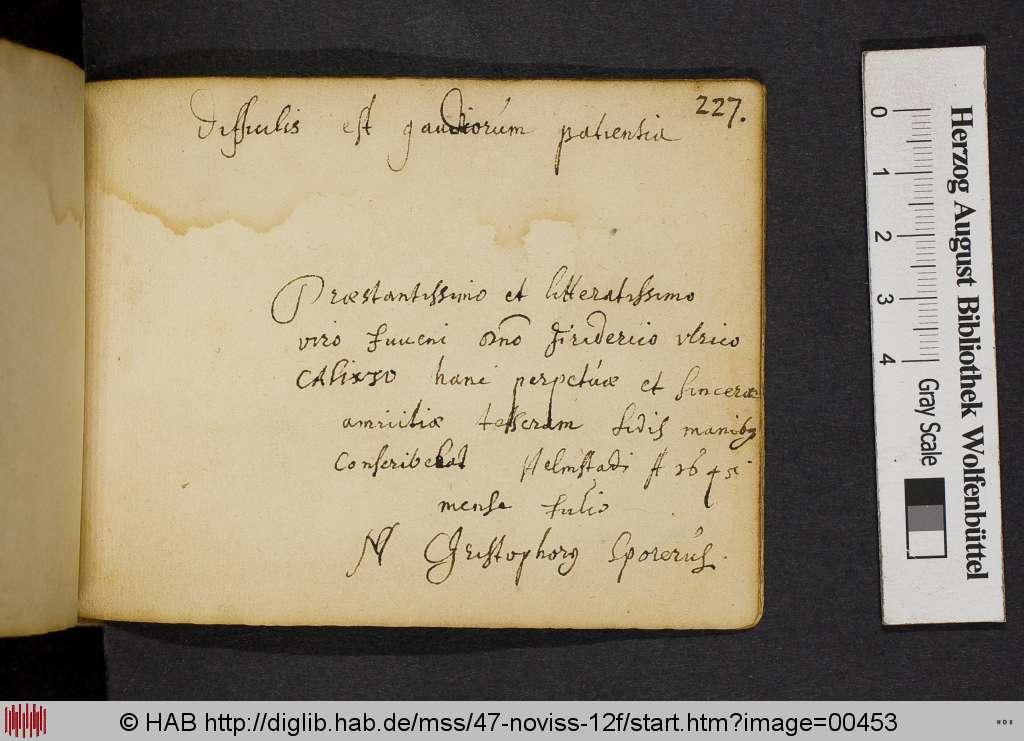 227.
Difficilis est gaudiorum patientia
Præstantissimo et litteratissimo
viro Iuveni Friderico Vlrico
CAlixto hanc perpetuæ et sinceræ
amicitiæ tesseram fidis manibꝫ
Conscribebat Helmstadi A 1645
mense Iulio
M Christophorꝫ Sporerus.
Herzog August Bibliothek Wolfenbüttel
0 1 2 3 4 Gray Scale
© HAB http://diglib.hab.de/mss/47-noviss-12f/start.htm?image=00453